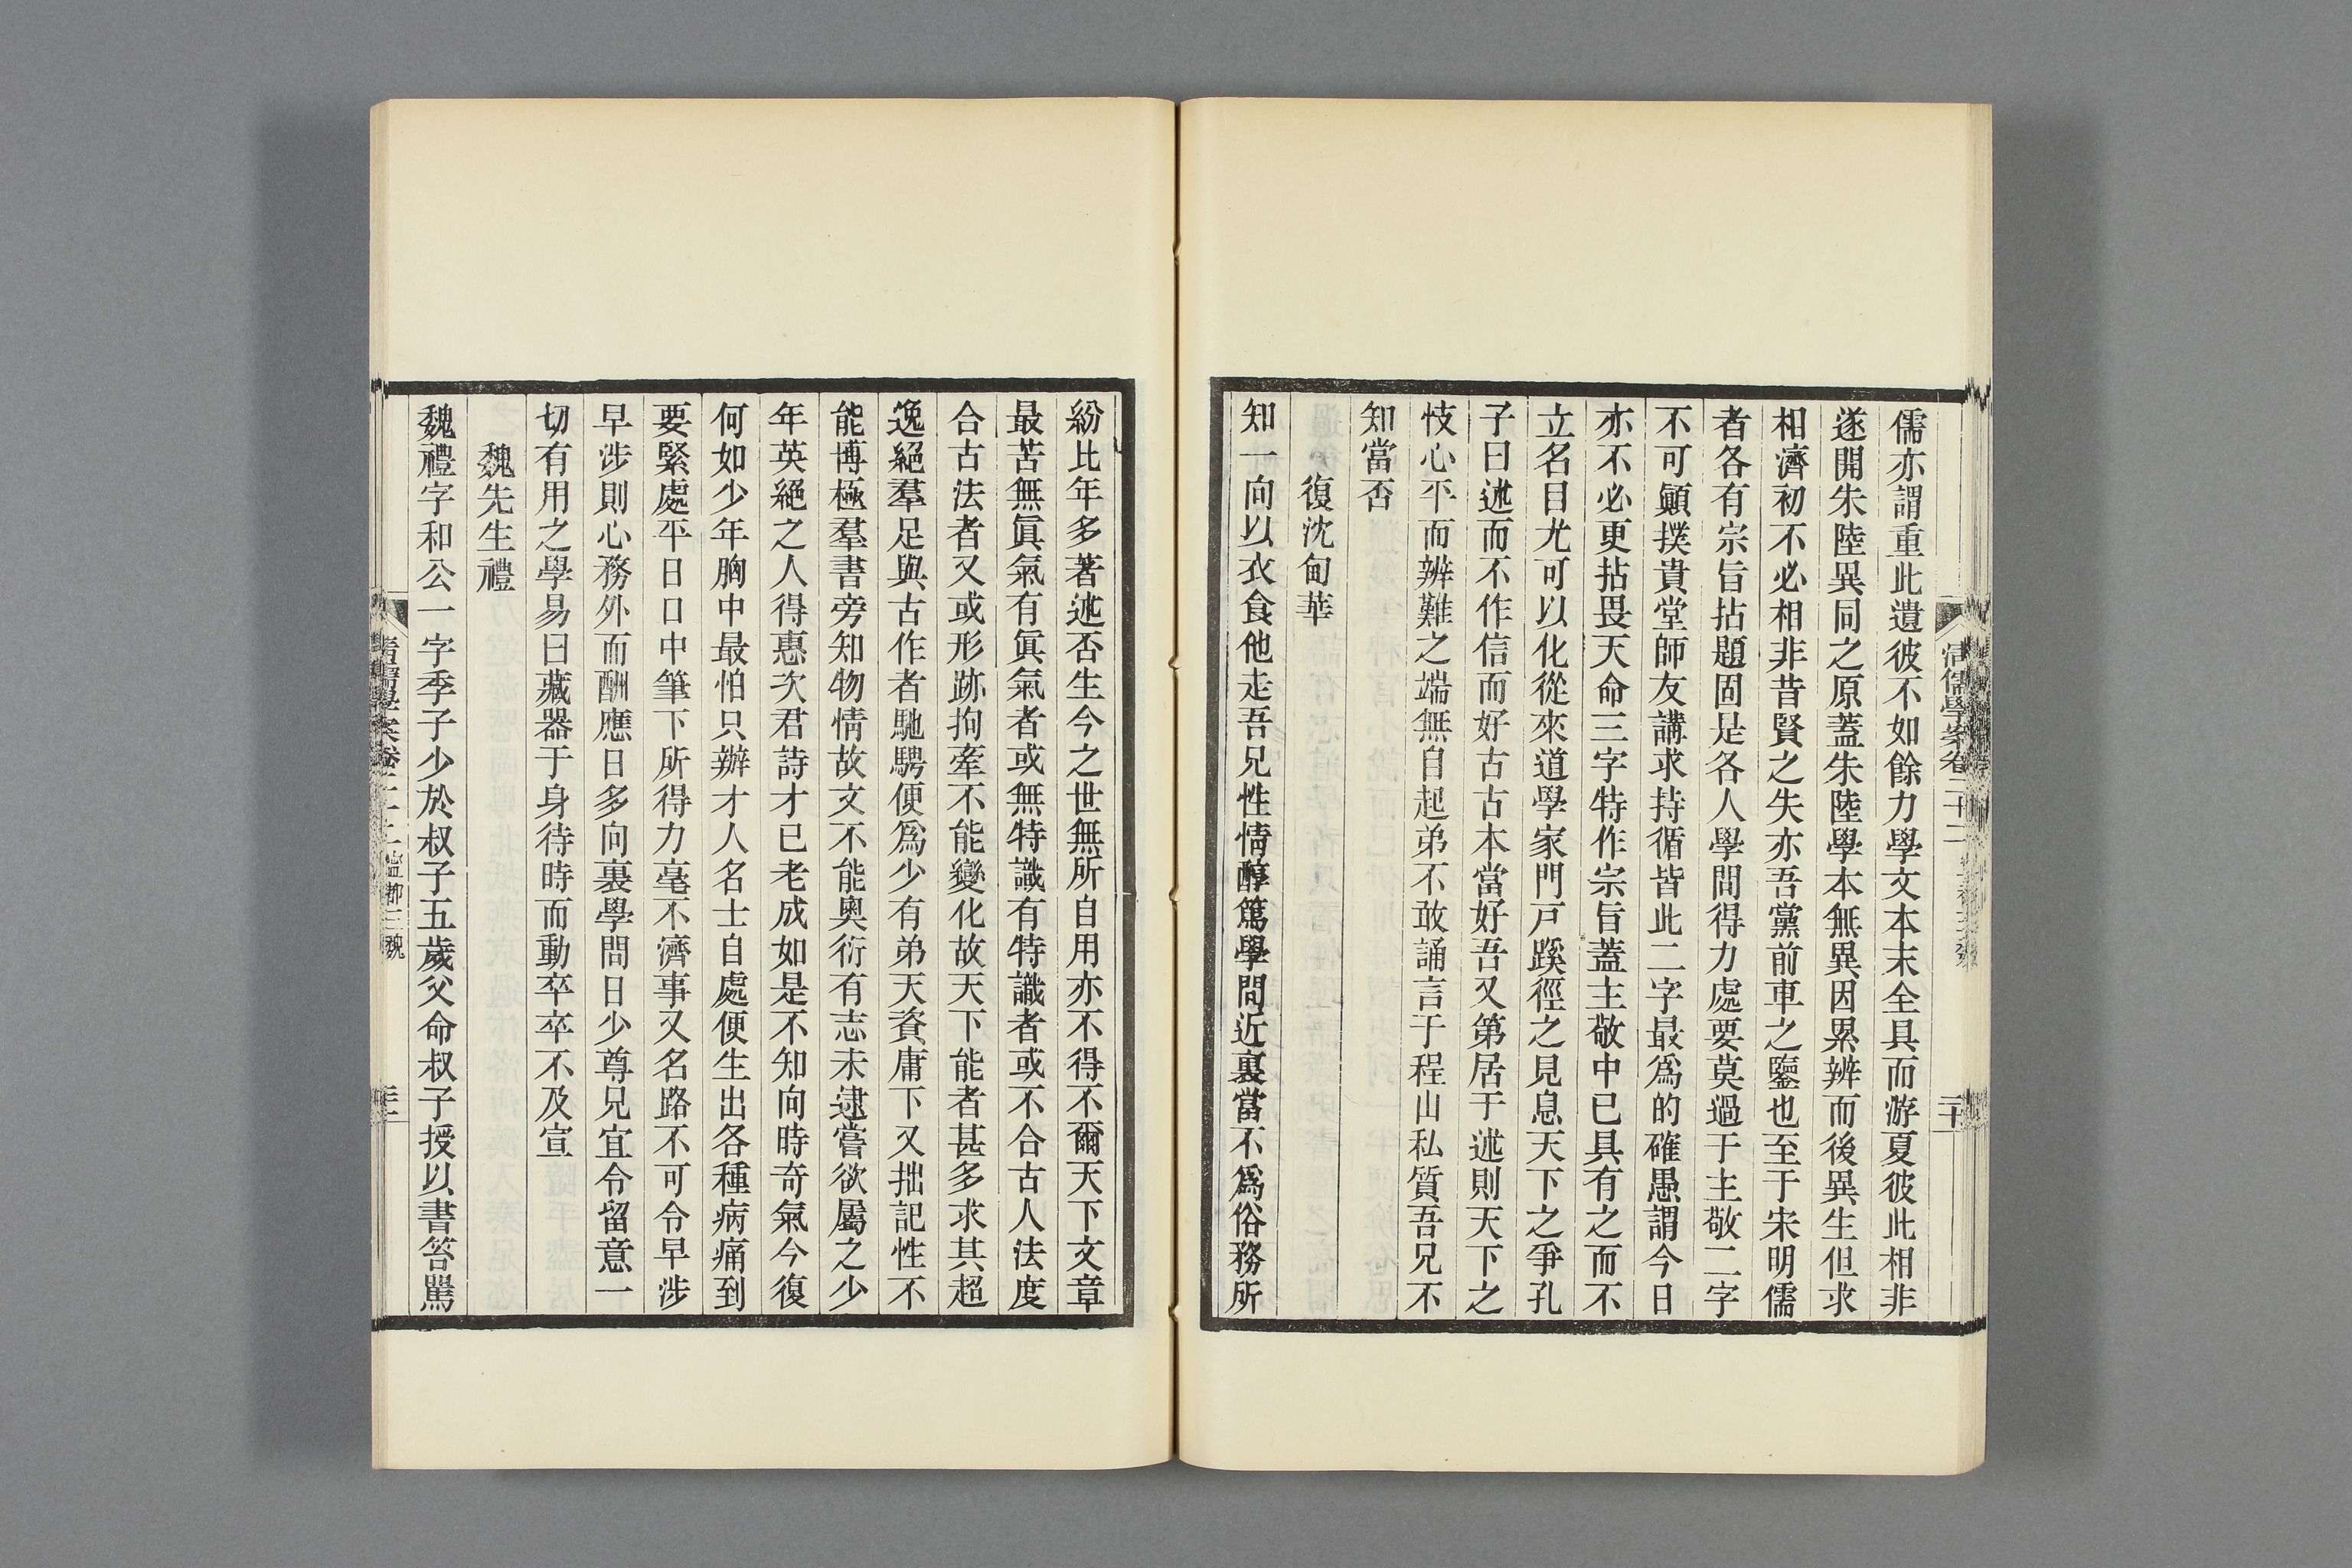 儒亦謂重此遺彼不如餘力學文本末全具而游夏彼此相非
遂開朱陸異同之原蓋朱陸學本無異因累辨而後異生但求
相濟初不必相非昔賢之失亦吾黨前車之鑒也至于宋明儒
者各有宗旨拈題固是各人學問得力處要莫過于主敬二字
不可顛撲貴堂師友講求持循皆此二字最爲的確愚謂今日
亦不必更拈畏天命三字特作宗旨蓋主敬中已具有之而不
立名目尤可以化從來道學家門戸蹊徑之見息天下之爭孔
子曰述而不作信而好古古本當好吾又第居于述則天下之
忮心平而辨難之端無自起弟不敢誦言于程山私質吾兄不
知當否
復沈甸華
知一向以衣食他走吾兄性情醇篤學問近裏當不爲俗務所
紛比年多著述否生今之世無所自用亦不得不爾天下文章
最苦無眞氣有眞氣者或無特識有特識者或不合古人法度
合古法者又或形跡拘牽不能變化故天下能者甚多求其超
逸絕羣足與古作者馳騁便爲少有弟天資庸下又拙記性不
能博極羣書旁知物情故文不能奧衍有志未逮嘗欲屬之少
年英絕之人得惠次君詩才已老成如是不知向時奇氣今復
何如少年胸中最怕只辦才人名士自處便生出各種病痛到
要緊處平日口中筆下所得力毫不濟事又名路不可令早涉
早涉則心務外而酬應日多向裏學問日少尊兄宜令留意一
切有用之學易曰藏器于身待時而動卒卒不及宣
魏先生禮
魏禮字和公一字季子少於叔子五歲父命叔子授以書笞罵